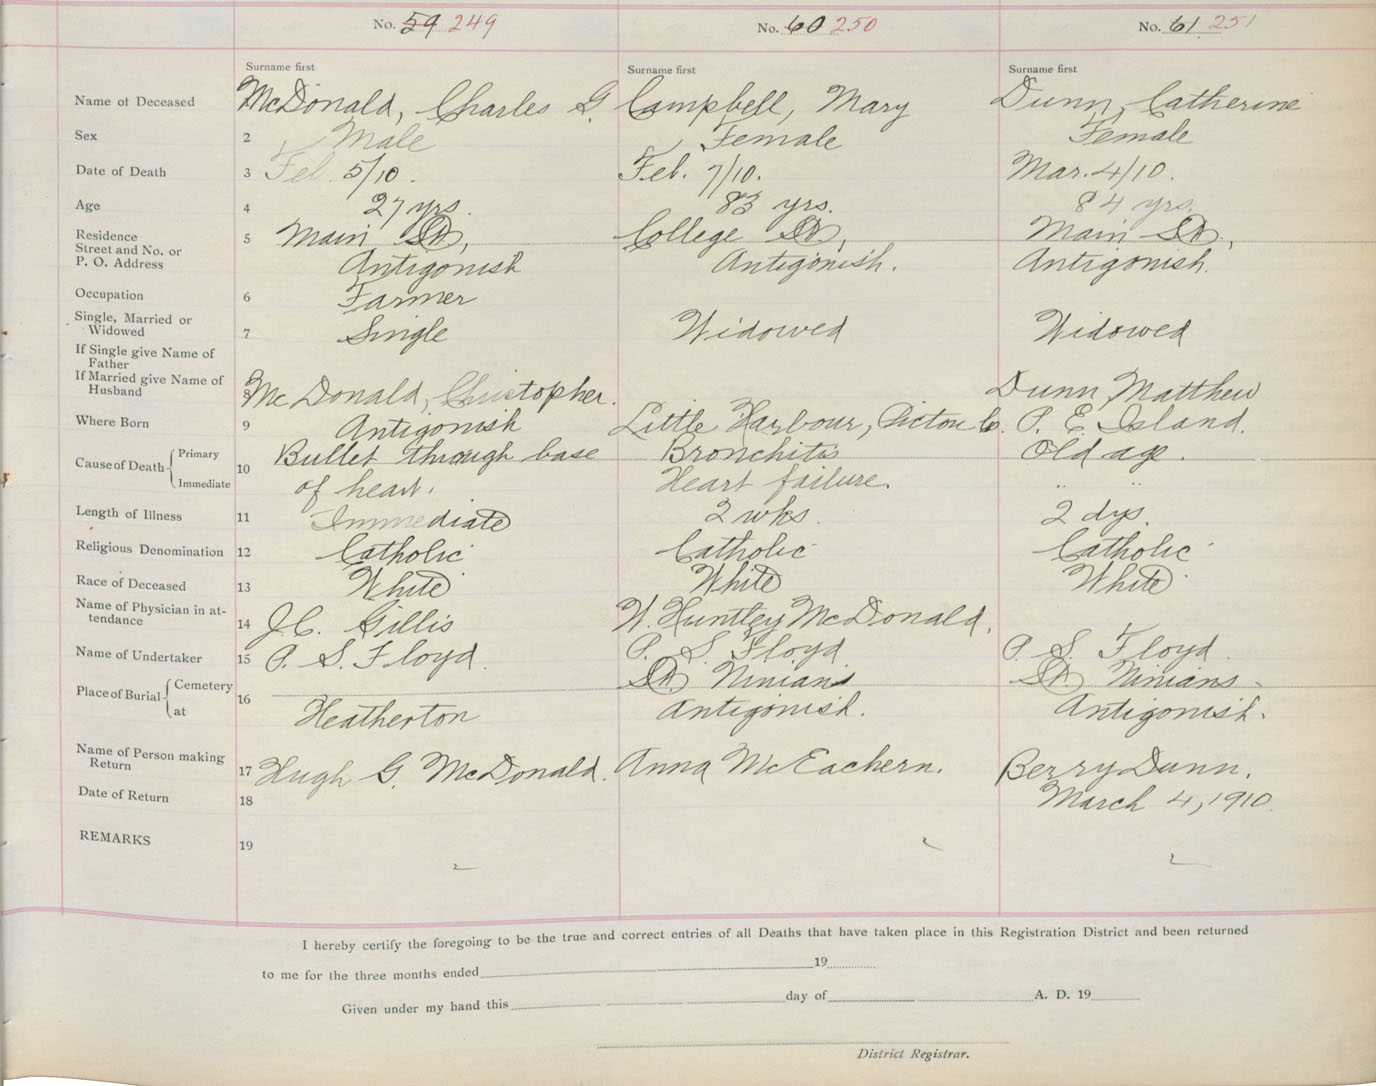 No. 59 249 No. 60 250 No. 61 251
Surname first Surname first Surname first
Name of Deceased McDonald, Charles G. Campbell, Mary Dunn, Catherine
Sex 2 Male Female Female
Date of Death 3 Feb. 5/10. Feb. 7/10. Mar. 4/10.
Age 4 27 yrs. 83 yrs. 84 yrs.
Residence 5 Main St., College St., Main St.,
Street and No. or
P. O. Address Antigonish Antigonish. Antigonish.
Occupation 6 Farmer
Single, Married or
Widowed 7 Single Widowed Widowed
If Single give Name of
Father
If Married give Name of
Husband 8 McDonald, Christopher. Dunn, Matthew
Where Born 9 Antigonish Little Harbour, Pictou Co. P. E. Island.
Cause of Death Primary 10 Bullet through base Bronchitis Old age.
Immediate of heart. Heart failure. " "
Length of Illness 11 Immediate 2 wks. 2 dys.
Religious Denomination 12 Catholic Catholic Catholic
Race of Deceased 13 White White White
Name of Physician in at-
tendance 14 J.C. Gillis W. Huntley McDonald.
Name of Undertaker 15 P. S. Floyd. P. S. Floyd P. S. Floyd.
Place of Burial Cemetery 16 St. Ninians St. Ninians -
at Heatherton Antigonish. Antigonish.
Name of Person making
Return 17 Hugh G. McDonald. Anna McEachern. Berry Dunn.
Date of Return 18 March 4, 1910.
REMARKS 19
I hereby certify the foregoing to be the true and correct entries of all Deaths that have taken place in this Registration District and been returned
to me for the three months ended 19
Given under my hand this day of A. D. 19
District Registrar.